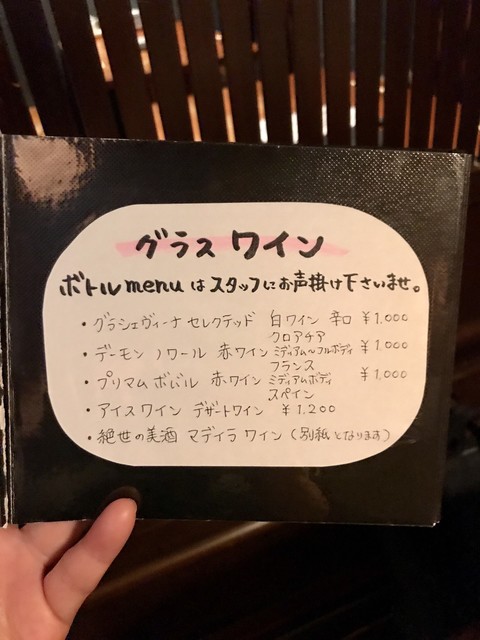 グラス ワイン
ボトルmenuはスタッフにお声掛け下さいませ。
・グラシェヴィーナ セレクテッド 白ワイン 辛口 ¥1.000
クロアチア
・デーモン ノワール 赤ワイン ミディアム〜フルボディ ¥1.000
フランス
・プリマム ボバル 赤ワイン ミディアムボディ ¥1.000
スペイン
・アイスワイン デザートワイン ¥1.200
・絶世の美酒 マデイラ ワイン (別紙となります)